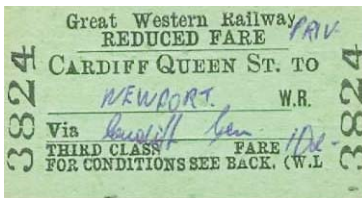 Great Western Railway
REDUCED FARE PRIV
CARDIFF QUEEN ST. TO
NEWPORT. W.R.
Via Cardiff Gen
THIRD CLASS FARE
FOR CONDITIONS SEE BACK. (W.L
3824
3824